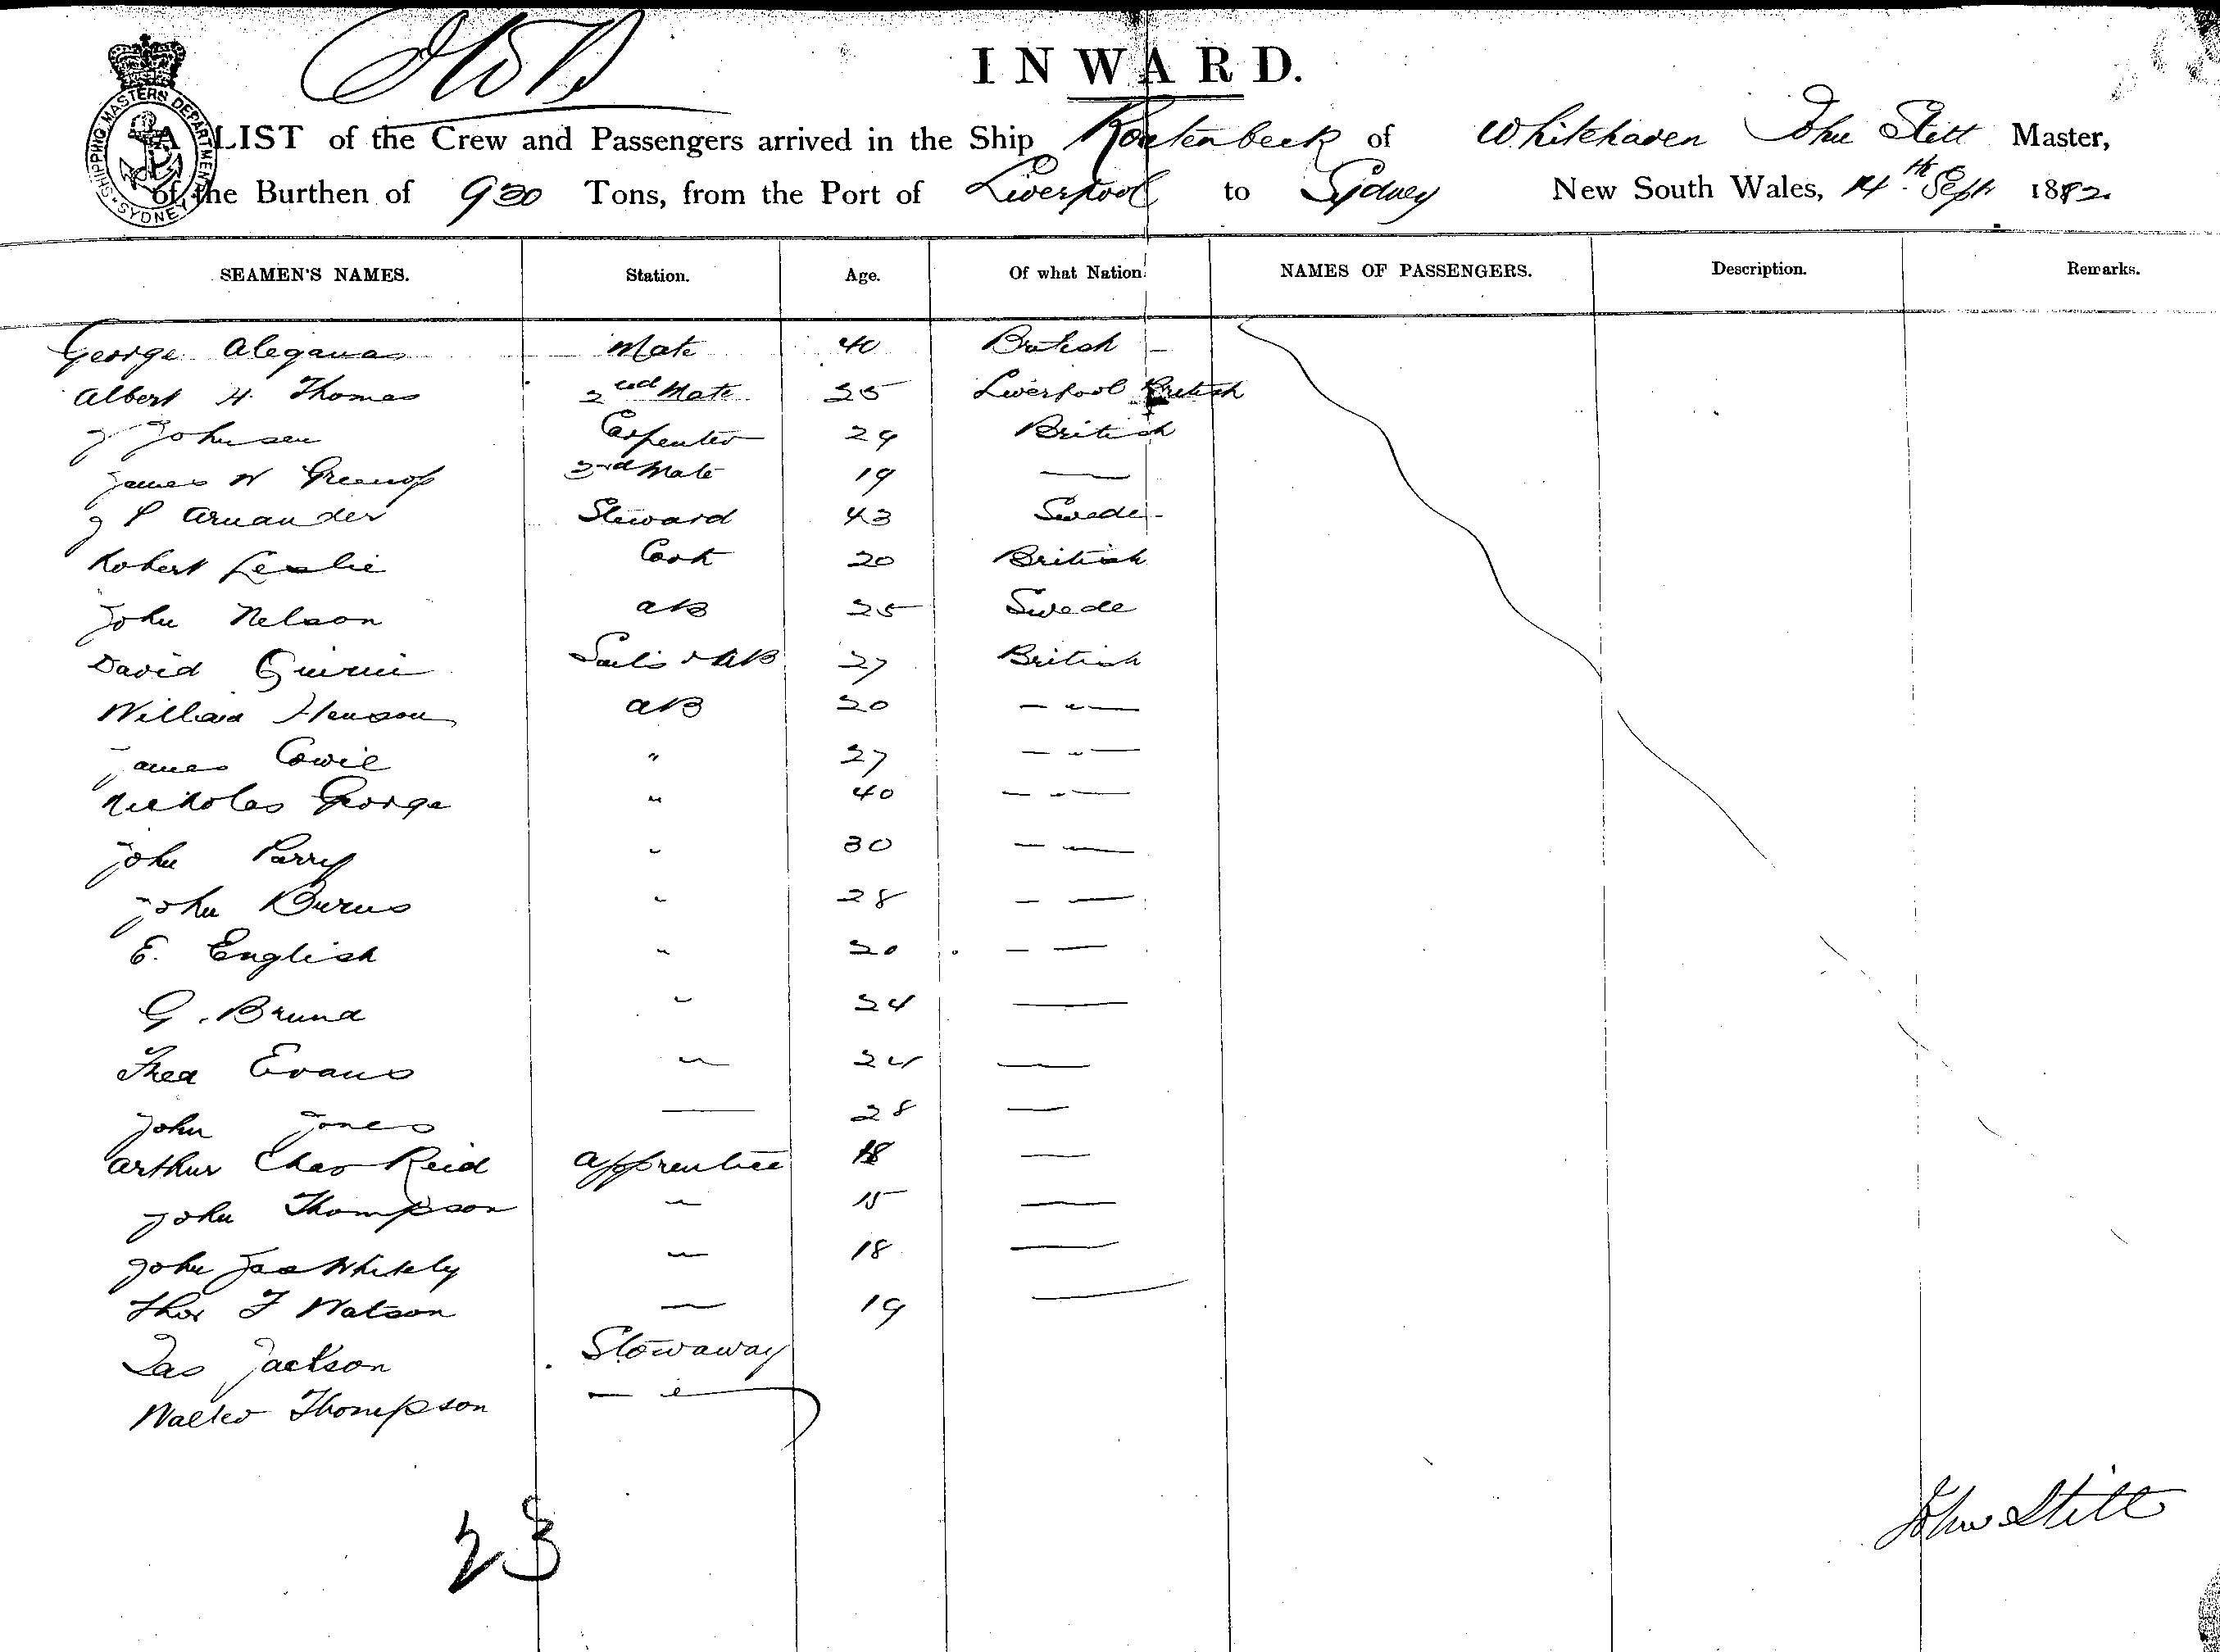 INWARD.
SHIPPING MASTERS DEPARTMENT SYDNEY
A LIST of the Crew and Passengers arrived in the Ship Routenbeck of Whitehaven John Stitt Master,
of the Burthen of 930 Tons, from the Port of Liverpool to Sydney New South Wales, 14th Sept 1882
SEAMEN'S NAMES. Station. Age. Of what Nation. NAMES OF PASSENGERS. Description. Remarks.
George Mate 40 British
Albert H. Thomas 2nd Mate 25 Liverpool British
J Johnsen Carpenter 29 British
James W Greenop 3rd Mate 19 —
J P Arnander Steward 43 Swede
Robert Leslie Cook 20 British
John Nelson AB 25 Swede
David Sails & AB 27 British
William Henson AB 20 — " —
James Cowie " 27 — " —
Nicholas George " 40 — " —
John Parry " 30 — —
John Burns " 28 — —
E. English " 20 — —
G. Bruna " 24 —
Fred Evans " 24 —
John Jones — 28 —
Arthur Chas Reid apprentice 18 —
John Thompson " 15 —
John Jas Whitely " 18 —
Thos F Watson — 19 —
Jas Jackson Stowaway
Walter Thompson — " —
23
John Stitt